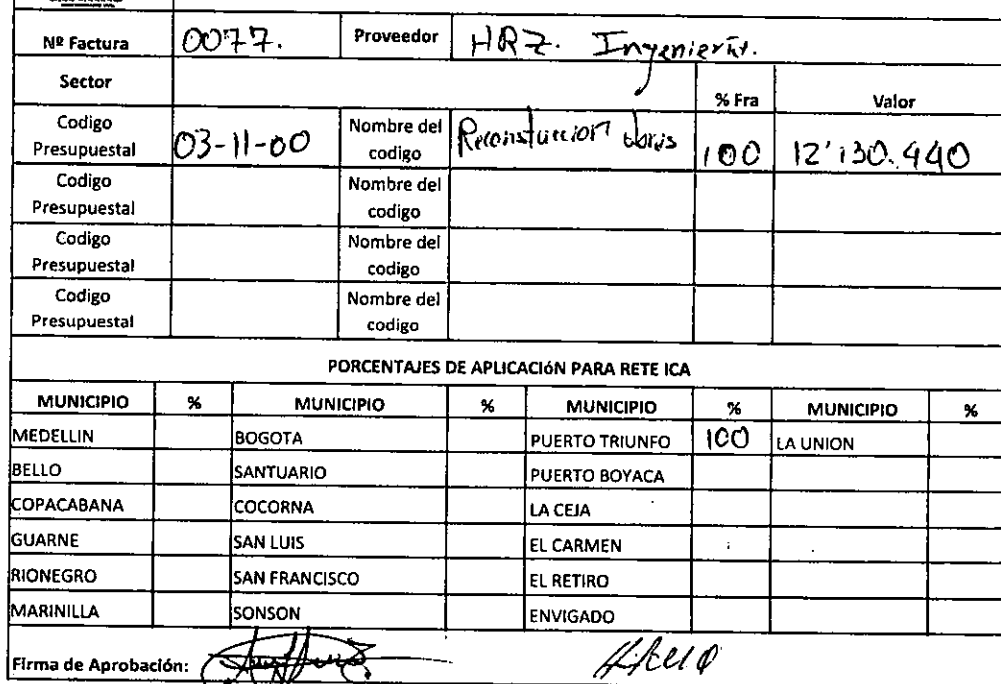 Nº Factura 0077. Proveedor HRZ. Ingeniería.
Sector % Fra Valor
Codigo Presupuestal 03-11-00 Nombre del codigo Reconstuccion obras 100 12'130.440
Codigo Presupuestal Nombre del codigo
Codigo Presupuestal Nombre del codigo
Codigo Presupuestal Nombre del codigo
PORCENTAJES DE APLICACIÓN PARA RETE ICA
MUNICIPIO % MUNICIPIO % MUNICIPIO % MUNICIPIO %
MEDELLIN BOGOTA PUERTO TRIUNFO 100 LA UNION
BELLO SANTUARIO PUERTO BOYACA
COPACABANA COCORNA LA CEJA
GUARNE SAN LUIS EL CARMEN
RIONEGRO SAN FRANCISCO EL RETIRO
MARINILLA SONSON ENVIGADO
Firma de Aprobación: